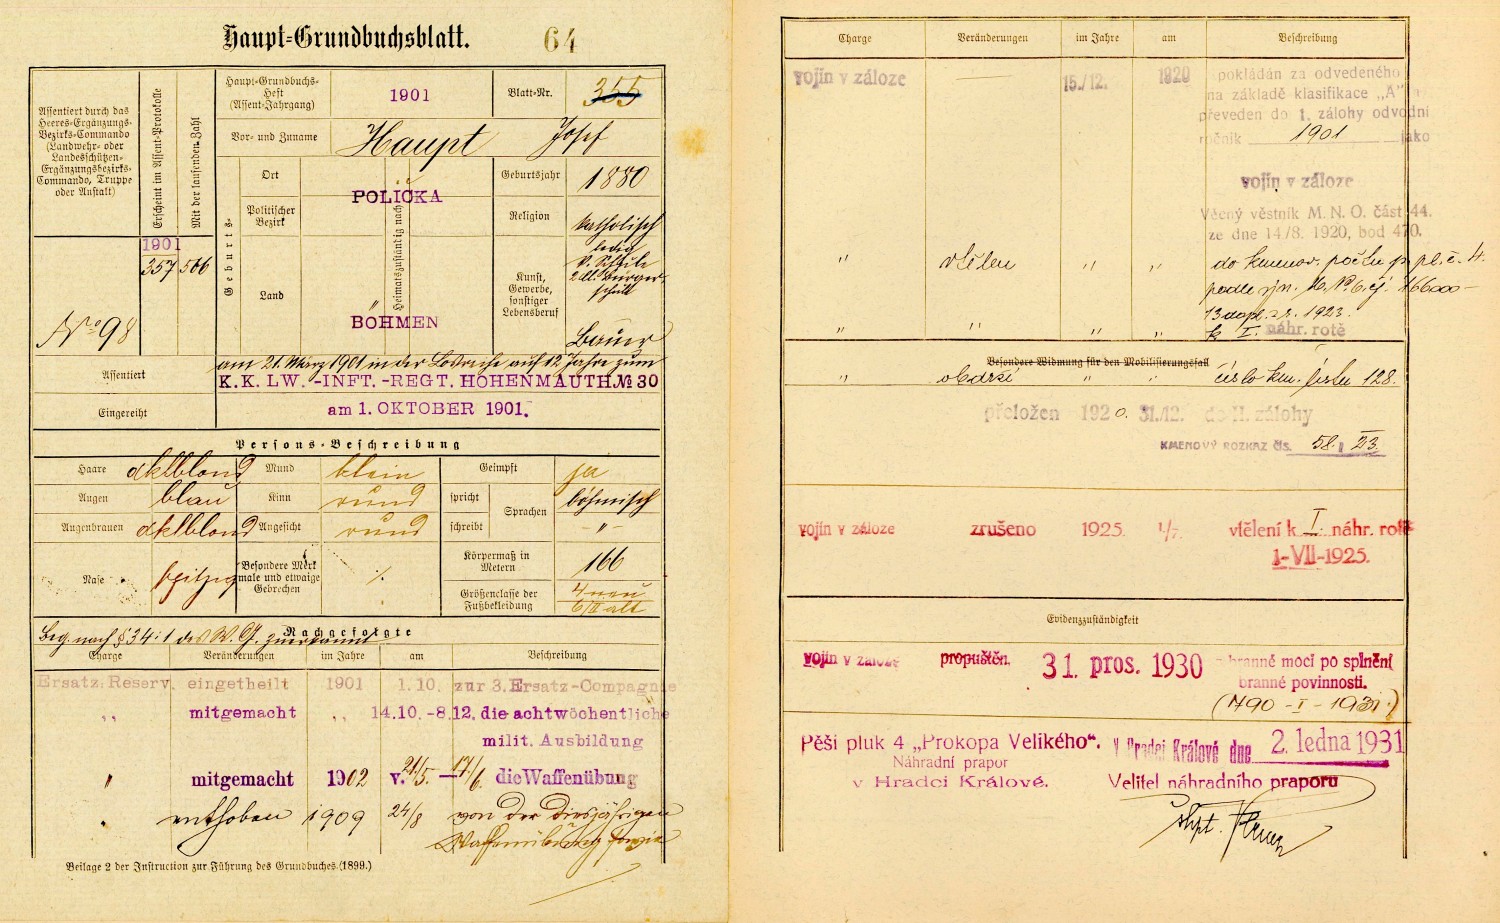 Haupt-Grundbuchsblatt.
64
Assentiert durch das
Heeres-Ergänzungs-
Bezirks-Commando
(Landwehr- oder
Landesschützen-
Ergänzungsbezirks-
Commando, Truppe
oder Anstalt)
Erscheint im Assent-Protokolle
Mit der laufenden Zahl
1901
357 506
No 98
Haupt-Grundbuchs-
Heft
(Assent-Jahrgang)
1901
Blatt-Nr.
355
Vor- und Zuname
Haupt Josef
Geburts-
Ort
Politischer
Bezirk
Land
Heimatszuständig nach
POLIČKA
"
BÖHMEN
Geburtsjahr
1880
Religion
katholisch
Kunst,
Gewerbe,
sonstiger
Lebensberuf
ledig
V. Schule
2 Kl. Bürger-
schule
Bauer
Assentiert
am 21. März 1901 in der Losreihe auf 12 Jahre zum
K.K. LW.-INFT.-REGT. HOHENMAUTH № 30
Eingereiht
am 1. OKTOBER 1901.
Persons-Beschreibung
Haare dklblond Mund klein Geimpft ja
Augen blau Kinn rund spricht Sprachen böhmisch
Augenbrauen dklblond Angesicht rund schreibt -"-
Nase spitzig
Besondere Merk-
male und etwaige
Gebrechen
./.
Körpermaß in
Metern
166
Größenclasse der
Fußbekleidung
4 neu
6/II alt
Beg. nach § 34:1 des W. G. zuerkannt
Nachgefolgte
Charge Veränderungen im Jahre am Beschreibung
Ersatz-Reserv. eingetheilt 1901 1.10. zur 3. Ersatz-Compagnie
" mitgemacht " 14.10.-8.12. die achtwöchentliche
milit. Ausbildung
" mitgemacht 1902 v. 21/5. – 17/6. die Waffenübung
" enthoben 1909 24/8 von der diesjährigen
Waffenübung
Beilage 2 der Instruction zur Führung des Grundbuches (1899.)
Charge Veränderungen im Jahre am Beschreibung
vojín v záloze — 15./12. 1920 pokládán za odvedeného
na základě klasifikace „A"
převeden do 1. zálohy odvodní
ročník 1901 jako
vojín v záloze
Věcný věstník M. N. O. část 44.
ze dne 14/8. 1920, bod 470.
" vtělen " " do kmenov. počtu p. pl. č. 4.
podle výn. M. N. O. čj. 166000 –
13 dopl. z r. 1923.
" " " " k I. náhr. rotě
Besondere Widmung für den Mobilisierungsfall
" obdržel " " číslo km. listu 128.
přeložen 1920. 31./12. do II. zálohy
KMENOVÝ ROZKAZ ČÍS. 58. II 23.
vojín v záloze zrušeno 1925. 1/7. vtělení k I. náhr. rotě
1-VII-1925.
Evidenzzuständigkeit
vojín v záloze propuštěn. 31. pros. 1930 z branné moci po splnění
branné povinnosti.
(1490 – I – 1931.)
Pěší pluk 4 „Prokopa Velikého".
Náhradní prapor
v Hradci Králové.
V Hradci Králové dne 2. ledna 1931
Velitel náhradního praporu
škpt.